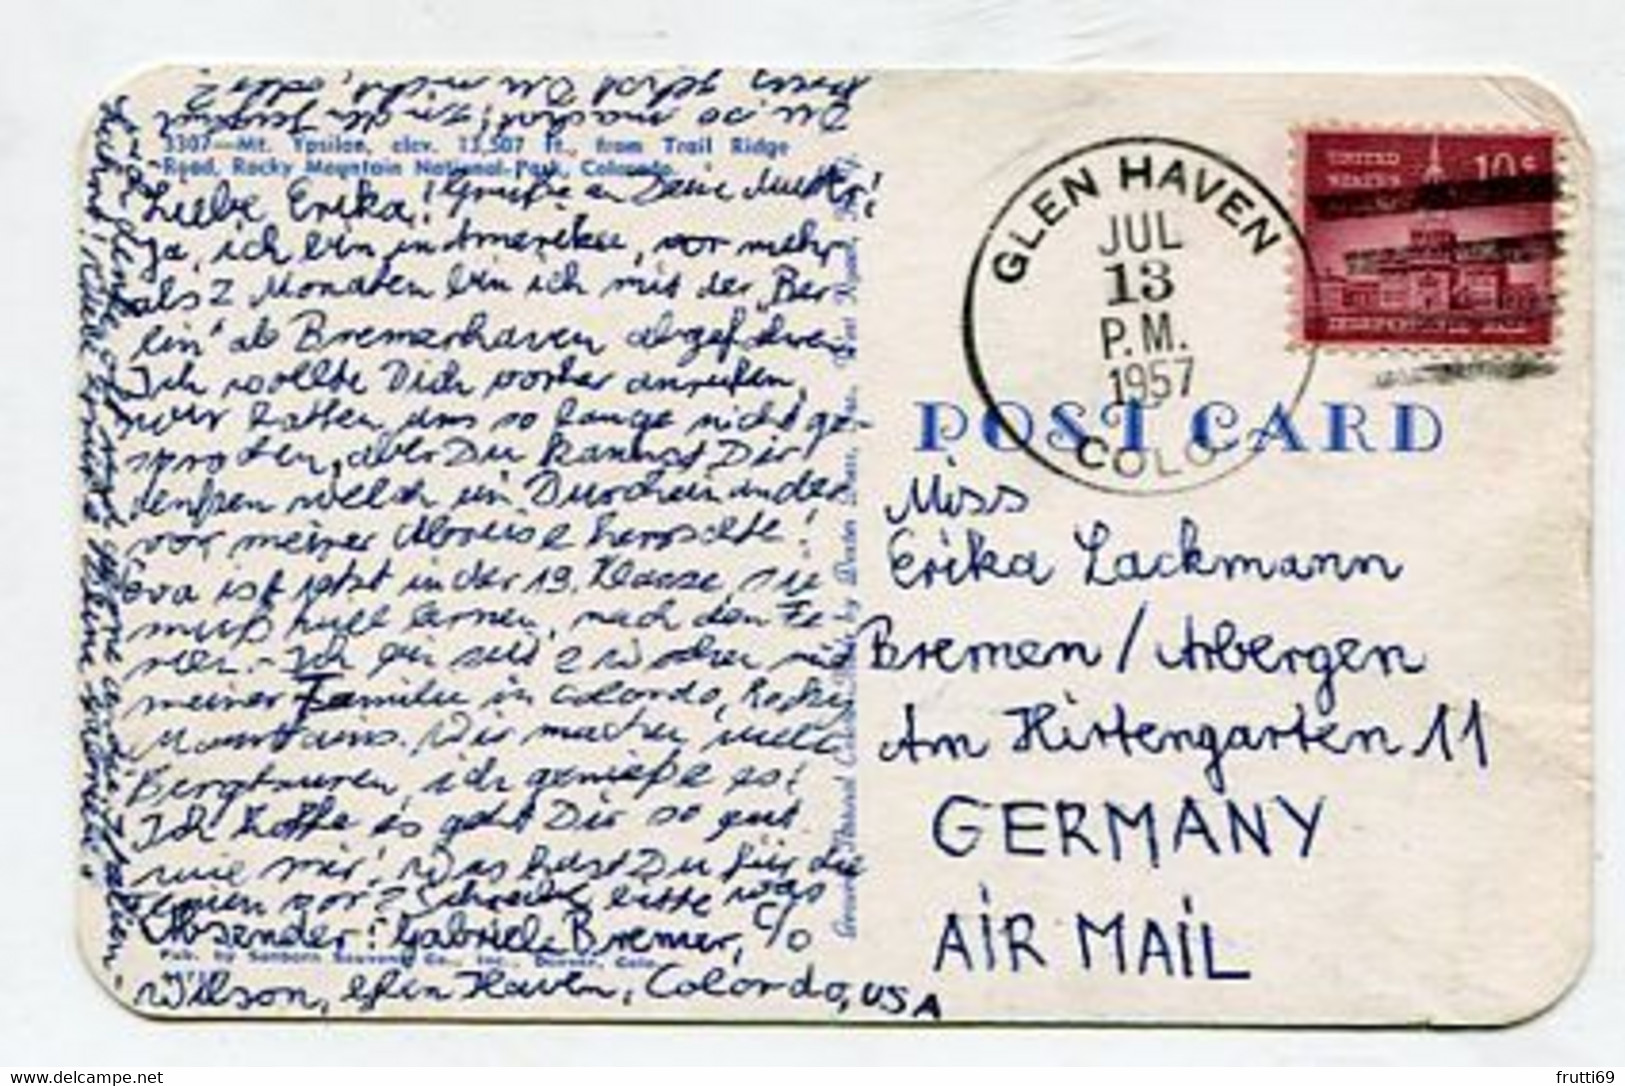 3307—Mt. Ypsilon, elev. 13,507 ft., from Trail Ridge
Road, Rocky Mountain National Park, Colorado.
Liebe Erika! Grüße an Deine Mutter!
Ja, ich bin in Amerika, vor mehr
als 2 Monaten bin ich mit der „Ber-
lin" ab Bremerhaven abgefahren.
Ich wollte Dich vorher anrufen,
wir hatten uns so lange nicht ge-
sprochen, aber Du kannst Dir
denken welch ein Durcheinander
vor meiner Abreise herrschte!
Eva ist jetzt in der 13. Klasse, sie
muß lernen, nach den Fe-
rien. - Ich bin seit 2 Wochen mit
meiner Familie in Colordo, Rocky
Mountains. Wir machen viele
Bergturen, ich genieße es!
Ich hoffe es geht Dir so gut
wie mir! Was hast Du für die
Ferien vor? Schreibe bitte was
Absender: Gabriele Bremer, c/o
Pub. by Sanborn Souvenir Co., Inc., Denver, Colo.
Wilson, Glen Haven, Colordo, USA
Du so machst! In den
Du nicht, oder?
POST CARD
GLEN HAVEN
JUL
13
P.M.
1957
COLO
UNITED
STATES
10¢
INDEPENDENCE HALL
Miss
Erika Lackmann
Bremen / Arbergen
Am Hirtengarten 11
GERMANY
AIR MAIL
frutti69